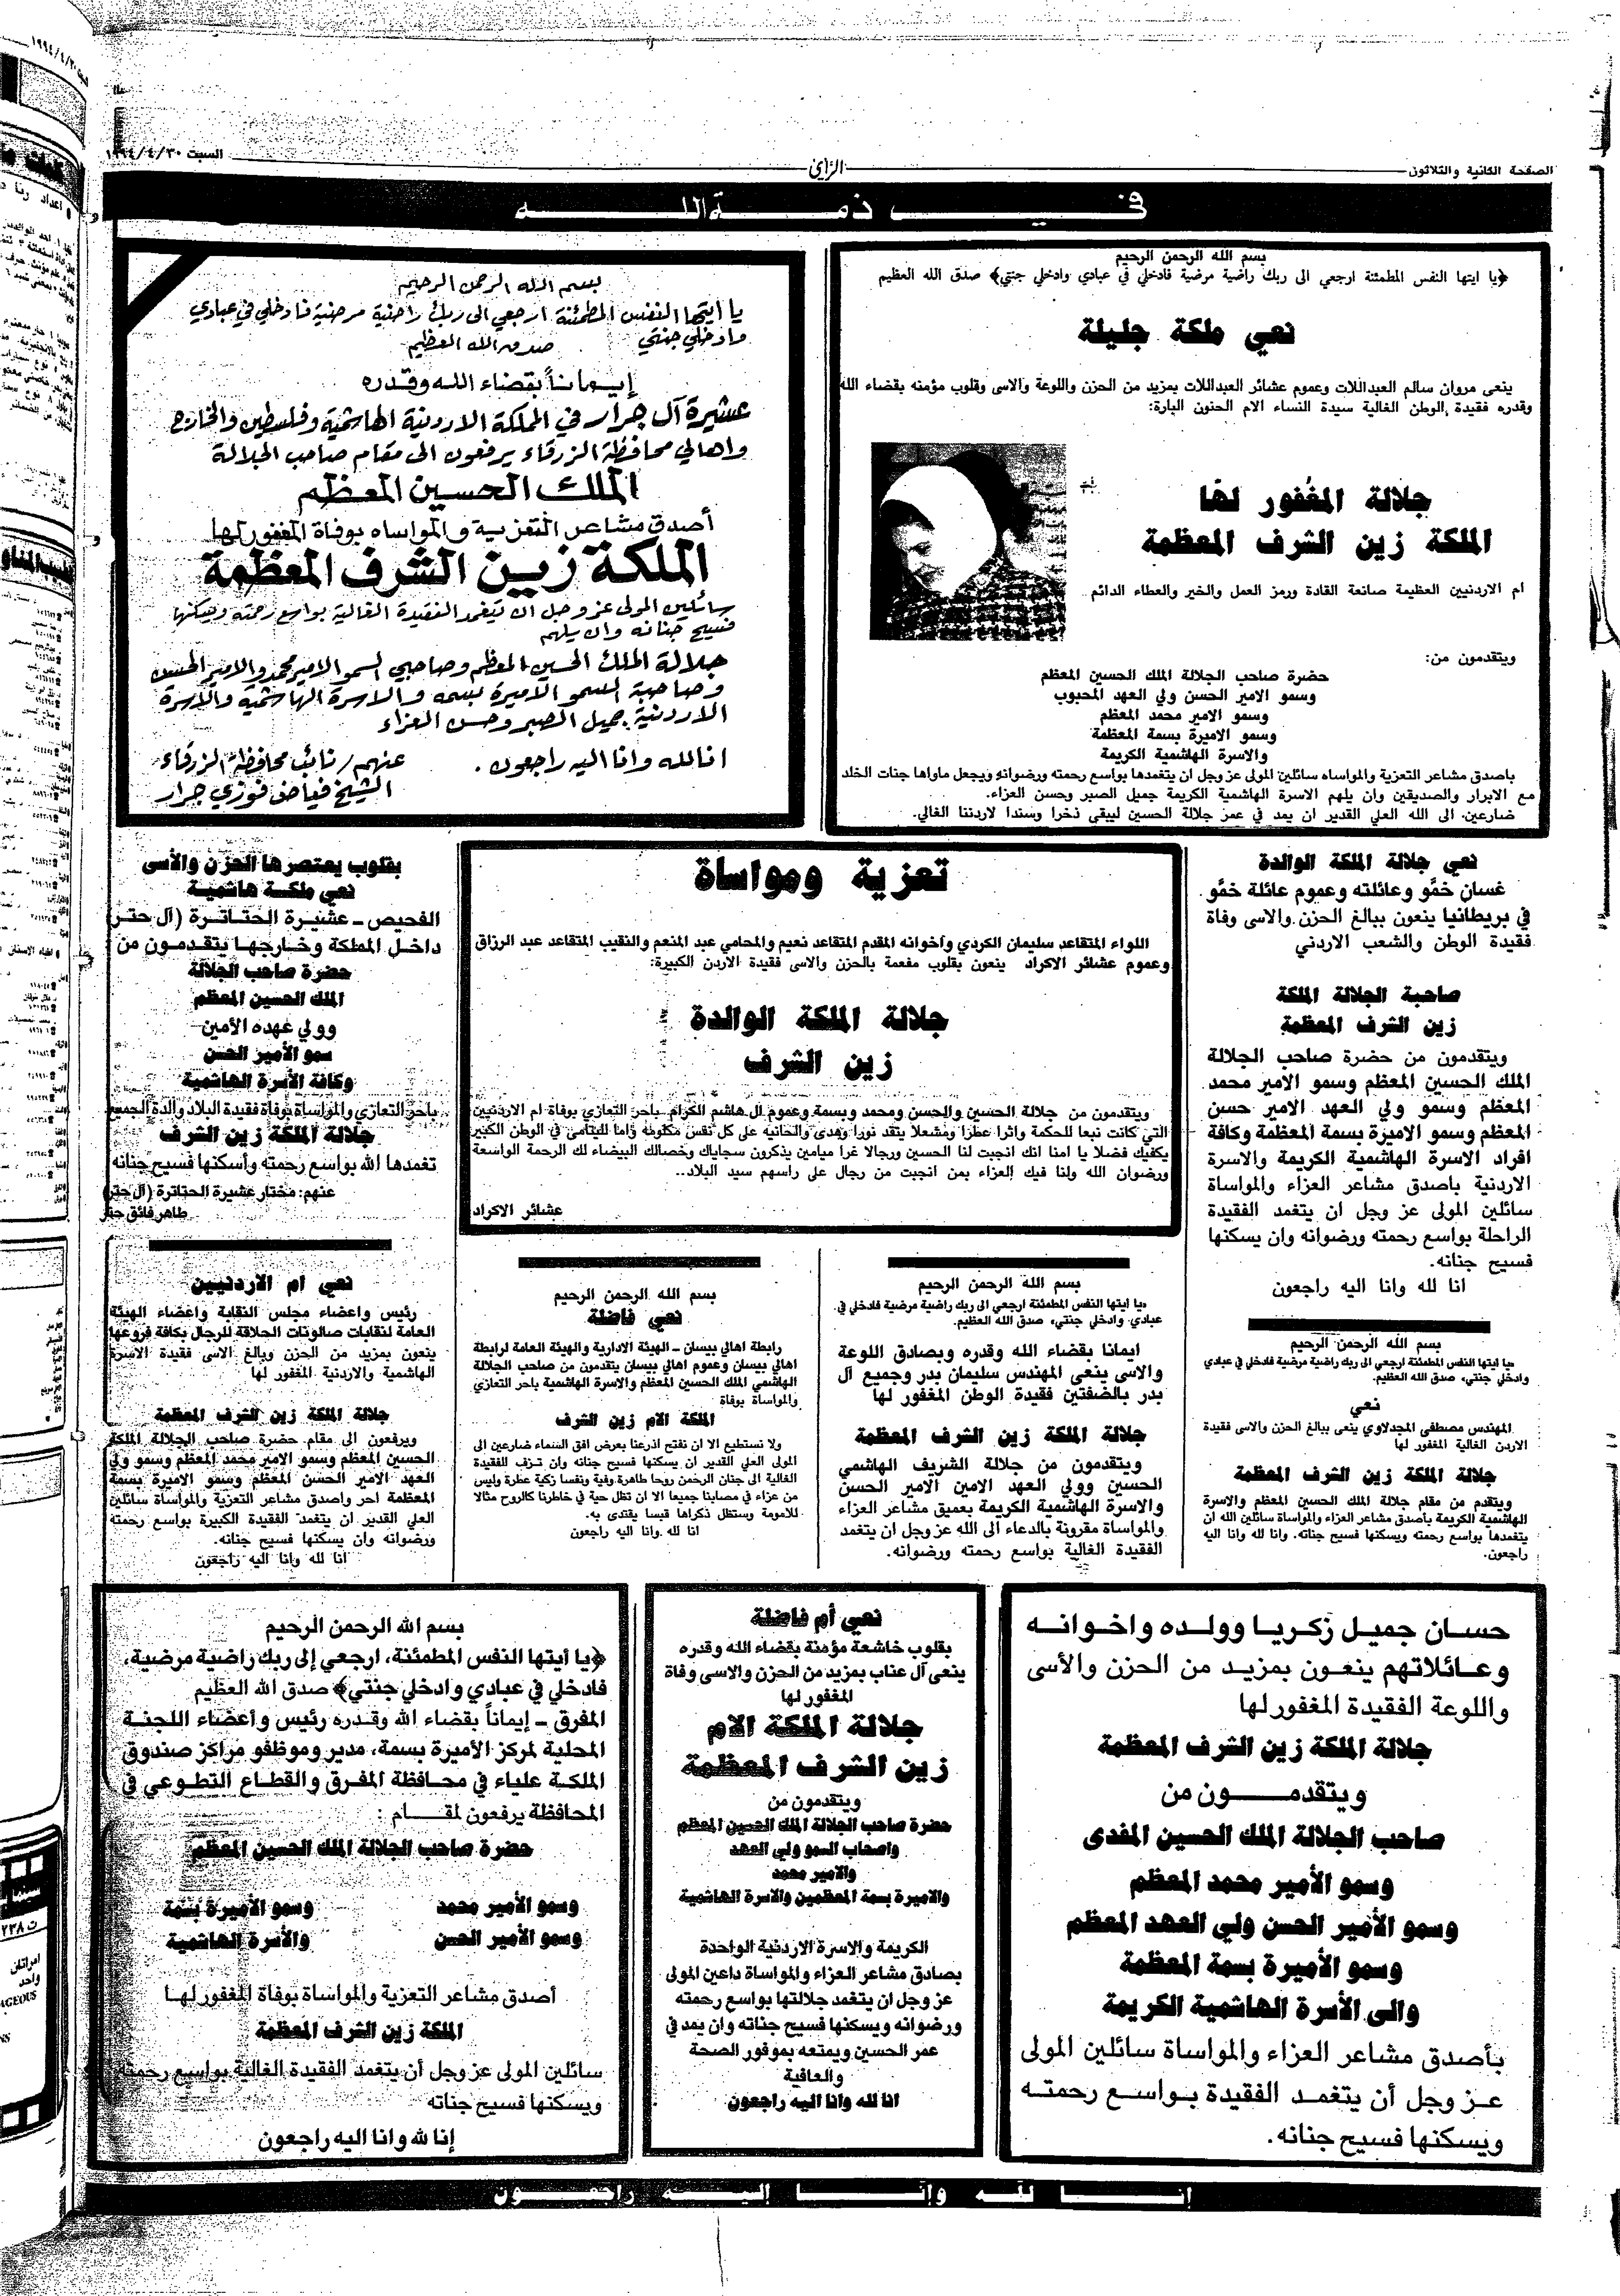 الصفحة الثانية والثلاثون
الرأي
السبت ١٩٩٤/٤/٣٠
في ذمة الله
بسم الله الرحمن الرحيم
﴿يا ايتها النفس المطمئنة ارجعي الى ربك راضية مرضية فادخلي في عبادي وادخلي جنتي﴾ صدق الله العظيم
نعي ملكة جليلة
ينعى مروان سالم العبداللات وعموم عشائر العبداللات بمزيد من الحزن واللوعة والاسى وقلوب مؤمنه بقضاء الله
وقدره فقيدة الوطن الغالية سيدة النساء الام الحنون البارة:
جلالة المغفور لها
الملكة زين الشرف المعظمة
ام الاردنيين العظيمة صانعة القادة ورمز العمل والخير والعطاء الدائم
ويتقدمون من:
حضرة صاحب الجلالة الملك الحسين المعظم
وسمو الامير الحسن ولي العهد المحبوب
وسمو الامير محمد المعظم
وسمو الاميرة بسمة المعظمة
والاسرة الهاشمية الكريمة
باصدق مشاعر التعزية والمواساه سائلين المولى عز وجل ان يتغمدها بواسع رحمته ورضوانه ويجعل ماواها جنات الخلد
مع الابرار والصديقين وان يلهم الاسرة الهاشمية الكريمة جميل الصبر وحسن العزاء.
ضارعين الى الله العلي القدير ان يمد في عمر جلالة الحسين ليبقى ذخرا وسندا لاردننا الغالي.
بسم الله الرحمن الرحيم
يا ايتها النفس المطمئنة ارجعي الى ربك راضية مرضية فادخلي في عبادي
وادخلي جنتي صدق الله العظيم
إيماناً بقضاء الله وقدره
عشيرة آل جرار في المملكة الاردنية الهاشمية وفلسطين والخارج
واهالي محافظة الزرقاء يرفعون الى مقام صاحب الجلالة
الملك الحسين المعظم
أصدق مشاعر التعزية والمواساه بوفاة المغفور لها
الملكة زين الشرف المعظمة
سائلين المولى عز وجل ان يتغمد الفقيدة الغالية بواسع رحمته ويسكنها
فسيح جنانه وان يلهم
جلالة الملك الحسين المعظم وصاحبي السمو الامير محمد والامير الحسن
وصاحبة السمو الاميرة بسمه والاسرة الهاشمية والاسرة
الاردنية جميل الصبر وحسن العزاء
انا لله وانا اليه راجعون .
عنهم / نائب محافظة الزرقاء
الشيخ فياض فوزي جرار
نعي جلالة الملكة الوالدة
غسان خمّو وعائلته وعموم عائلة خمّو
في بريطانيا ينعون ببالغ الحزن والاسى وفاة
فقيدة الوطن والشعب الاردني
صاحبة الجلالة الملكة
زين الشرف المعظمة
ويتقدمون من حضرة صاحب الجلالة
الملك الحسين المعظم وسمو الامير محمد
المعظم وسمو ولي العهد الامير حسن
المعظم وسمو الاميرة بسمة المعظمة وكافة
افراد الاسرة الهاشمية الكريمة والاسرة
الاردنية باصدق مشاعر العزاء والمواساة
سائلين المولى عز وجل ان يتغمد الفقيدة
الراحلة بواسع رحمته ورضوانه وان يسكنها
فسيح جنانه.
انا لله وانا اليه راجعون
تعزية ومواساة
اللواء المتقاعد سليمان الكردي وأخوانه المقدم المتقاعد نعيم والمحامي عبد المنعم والنقيب المتقاعد عبد الرزاق
وعموم عشائر الاكراد ينعون بقلوب مفعمة بالحزن والاسى فقيدة الاردن الكبيرة:
جلالة الملكة الوالدة
زين الشرف
ويتقدمون من جلالة الحسين والحسن ومحمد وبسمة وعموم ال هاشم الكرام باحر التعازي بوفاة ام الاردنيين
التي كانت نبعا للحكمة واثرا عطرا ومشعلا يتقد نورا وهدى والحانيه على كل نفس مكلومه واما لليتامى في الوطن الكبير
يكفيك فضلا يا امنا انك انجبت لنا الحسين ورجالا غرا ميامين يذكرون سجاياك وخصالك البيضاء لك الرحمة الواسعة
ورضوان الله ولنا فيك العزاء بمن انجبت من رجال على راسهم سيد البلاد..
عشائر الاكراد
بقلوب يعتصرها الحزن والأسى
نعي ملكة هاشمية
الفحيص ـ عشيرة الحتاترة (آل حتر)
داخل المملكة وخارجها يتقدمون من
حضرة صاحب الجلالة
الملك الحسين المعظم
وولي عهده الأمين
سمو الأمير الحسن
وكافة الأسرة الهاشمية
باحر التعازي والمواساة بوفاة فقيدة البلاد والدة الجميع
جلالة الملكة زين الشرف
تغمدها الله بواسع رحمته وأسكنها فسيح جناته
عنهم: مختار عشيرة الحتاترة (آل حتر)
طاهر فائق حتر
بسم الله الرحمن الرحيم
«يا ايتها النفس المطمئنة ارجعي الى ربك راضية مرضية فادخلي في عبادي
وادخلي جنتي» صدق الله العظيم.
نعي
المهندس مصطفى المجدلاوي ينعى ببالغ الحزن والاسى فقيدة
الاردن الغالية المغفور لها
جلالة الملكة زين الشرف المعظمة
ويتقدم من مقام جلالة الملك الحسين المعظم والاسرة
الهاشمية الكريمة باصدق مشاعر العزاء والمواساة سائلين الله ان
يتغمدها بواسع رحمته ويسكنها فسيح جناته. وانا لله وانا اليه
راجعون.
بسم الله الرحمن الرحيم
«يا ايتها النفس المطمئنة ارجعي الى ربك راضية مرضية فادخلي في
عبادي وادخلي جنتي» صدق الله العظيم.
ايمانا بقضاء الله وقدره وبصادق اللوعة
والاسى ينعى المهندس سليمان بدر وجميع آل
بدر بالضفتين فقيدة الوطن المغفور لها
جلالة الملكة زين الشرف المعظمة
ويتقدمون من جلالة الشريف الهاشمي
الحسين وولي العهد الامين الامير الحسن
والاسرة الهاشمية الكريمة بعميق مشاعر العزاء
والمواساة مقرونة بالدعاء الى الله عز وجل ان يتغمد
الفقيدة الغالية بواسع رحمته ورضوانه.
بسم الله الرحمن الرحيم
نعي فاضلة
رابطة اهالي بيسان ـ الهيئة الادارية والهيئة العامة لرابطة
اهالي بيسان وعموم اهالي بيسان يتقدمون من صاحب الجلالة
الهاشمي الملك الحسين المعظم والاسرة الهاشمية باحر التعازي
والمواساة بوفاة
الملكة الام زين الشرف
ولا نستطيع الا ان نفتح اذرعنا بعرض افق السماء ضارعين الى
المولى العلي القدير ان يسكنها فسيح جنانه وان تزف للفقيدة
الغالية الى جنان الرحمن روحا طاهرة وفية ونفسا زكية عطرة وليس
من عزاء في مصابنا جميعا الا ان تظل حية في خاطرنا كالروح مثالا
للامومة وستظل ذكراها قبسا يقتدى به.
انا لله وانا اليه راجعون
نعي ام الاردنيين
رئيس واعضاء مجلس النقابة واعضاء الهيئة
العامة لنقابات صالونات الحلاقة للرجال بكافة فروعها
ينعون بمزيد من الحزن وبالغ الاسى فقيدة الاسرة
الهاشمية والاردنية المغفور لها
جلالة الملكة زين الشرف المعظمة
ويرفعون الى مقام حضرة صاحب الجلالة الملكة
الحسين المعظم وسمو الامير محمد المعظم وسمو ولي
العهد الامير الحسن المعظم وسمو الاميرة بسمة
المعظمة احر واصدق مشاعر التعزية والمواساة سائلين
العلي القدير ان يتغمد الفقيدة الكبيرة بواسع رحمته
ورضوانه وان يسكنها فسيح جناته.
انا لله وانا اليه راجعون
حسان جميل زكريا وولده واخوانه
وعائلاتهم ينعون بمزيد من الحزن والأسى
واللوعة الفقيدة المغفور لها
جلالة الملكة زين الشرف المعظمة
ويتقدمون من
صاحب الجلالة الملك الحسين المفدى
وسمو الأمير محمد المعظم
وسمو الأمير الحسن ولي العهد المعظم
وسمو الأميرة بسمة المعظمة
والى الأسرة الهاشمية الكريمة
بأصدق مشاعر العزاء والمواساة سائلين المولى
عز وجل أن يتغمد الفقيدة بواسع رحمته
ويسكنها فسيح جنانه.
نعي أم فاضلة
بقلوب خاشعة مؤمنة بقضاء الله وقدره
ينعى آل عناب بمزيد من الحزن والاسى وفاة
المغفور لها
جلالة الملكة الام
زين الشرف المعظمة
ويتقدمون من
حضرة صاحب الجلالة الملك الحسين المعظم
واصحاب السمو ولي العهد
والامير محمد
والاميرة بسمة المعظمين والاسرة الهاشمية
الكريمة والاسرة الاردنية الواحدة
بصادق مشاعر العزاء والمواساة داعين المولى
عز وجل ان يتغمد جلالتها بواسع رحمته
ورضوانه ويسكنها فسيح جناته وان يمد في
عمر الحسين ويمتعه بموفور الصحة
والعافية
انا لله وانا اليه راجعون
بسم الله الرحمن الرحيم
﴿يا أيتها النفس المطمئنة، ارجعي إلى ربك راضية مرضية،
فادخلي في عبادي وادخلي جنتي﴾ صدق الله العظيم
المفرق ـ إيماناً بقضاء الله وقدره رئيس واعضاء اللجنة
المحلية لمركز الأميرة بسمة، مدير وموظفو مراكز صندوق
الملكة علياء في محافظة المفرق والقطاع التطوعي في
المحافظة يرفعون لمقام :
حضرة صاحب الجلالة الملك الحسين المعظم
وسمو الأمير محمد وسمو الأميرة بسمة
وسمو الأمير الحسن والأسرة الهاشمية
أصدق مشاعر التعزية والمواساة بوفاة المغفور لها
الملكة زين الشرف المعظمة
سائلين المولى عز وجل أن يتغمد الفقيدة الغالية بواسع رحمته
ويسكنها فسيح جناته
إنا لله وانا اليه راجعون
إنا لله وانا إليه راجعون